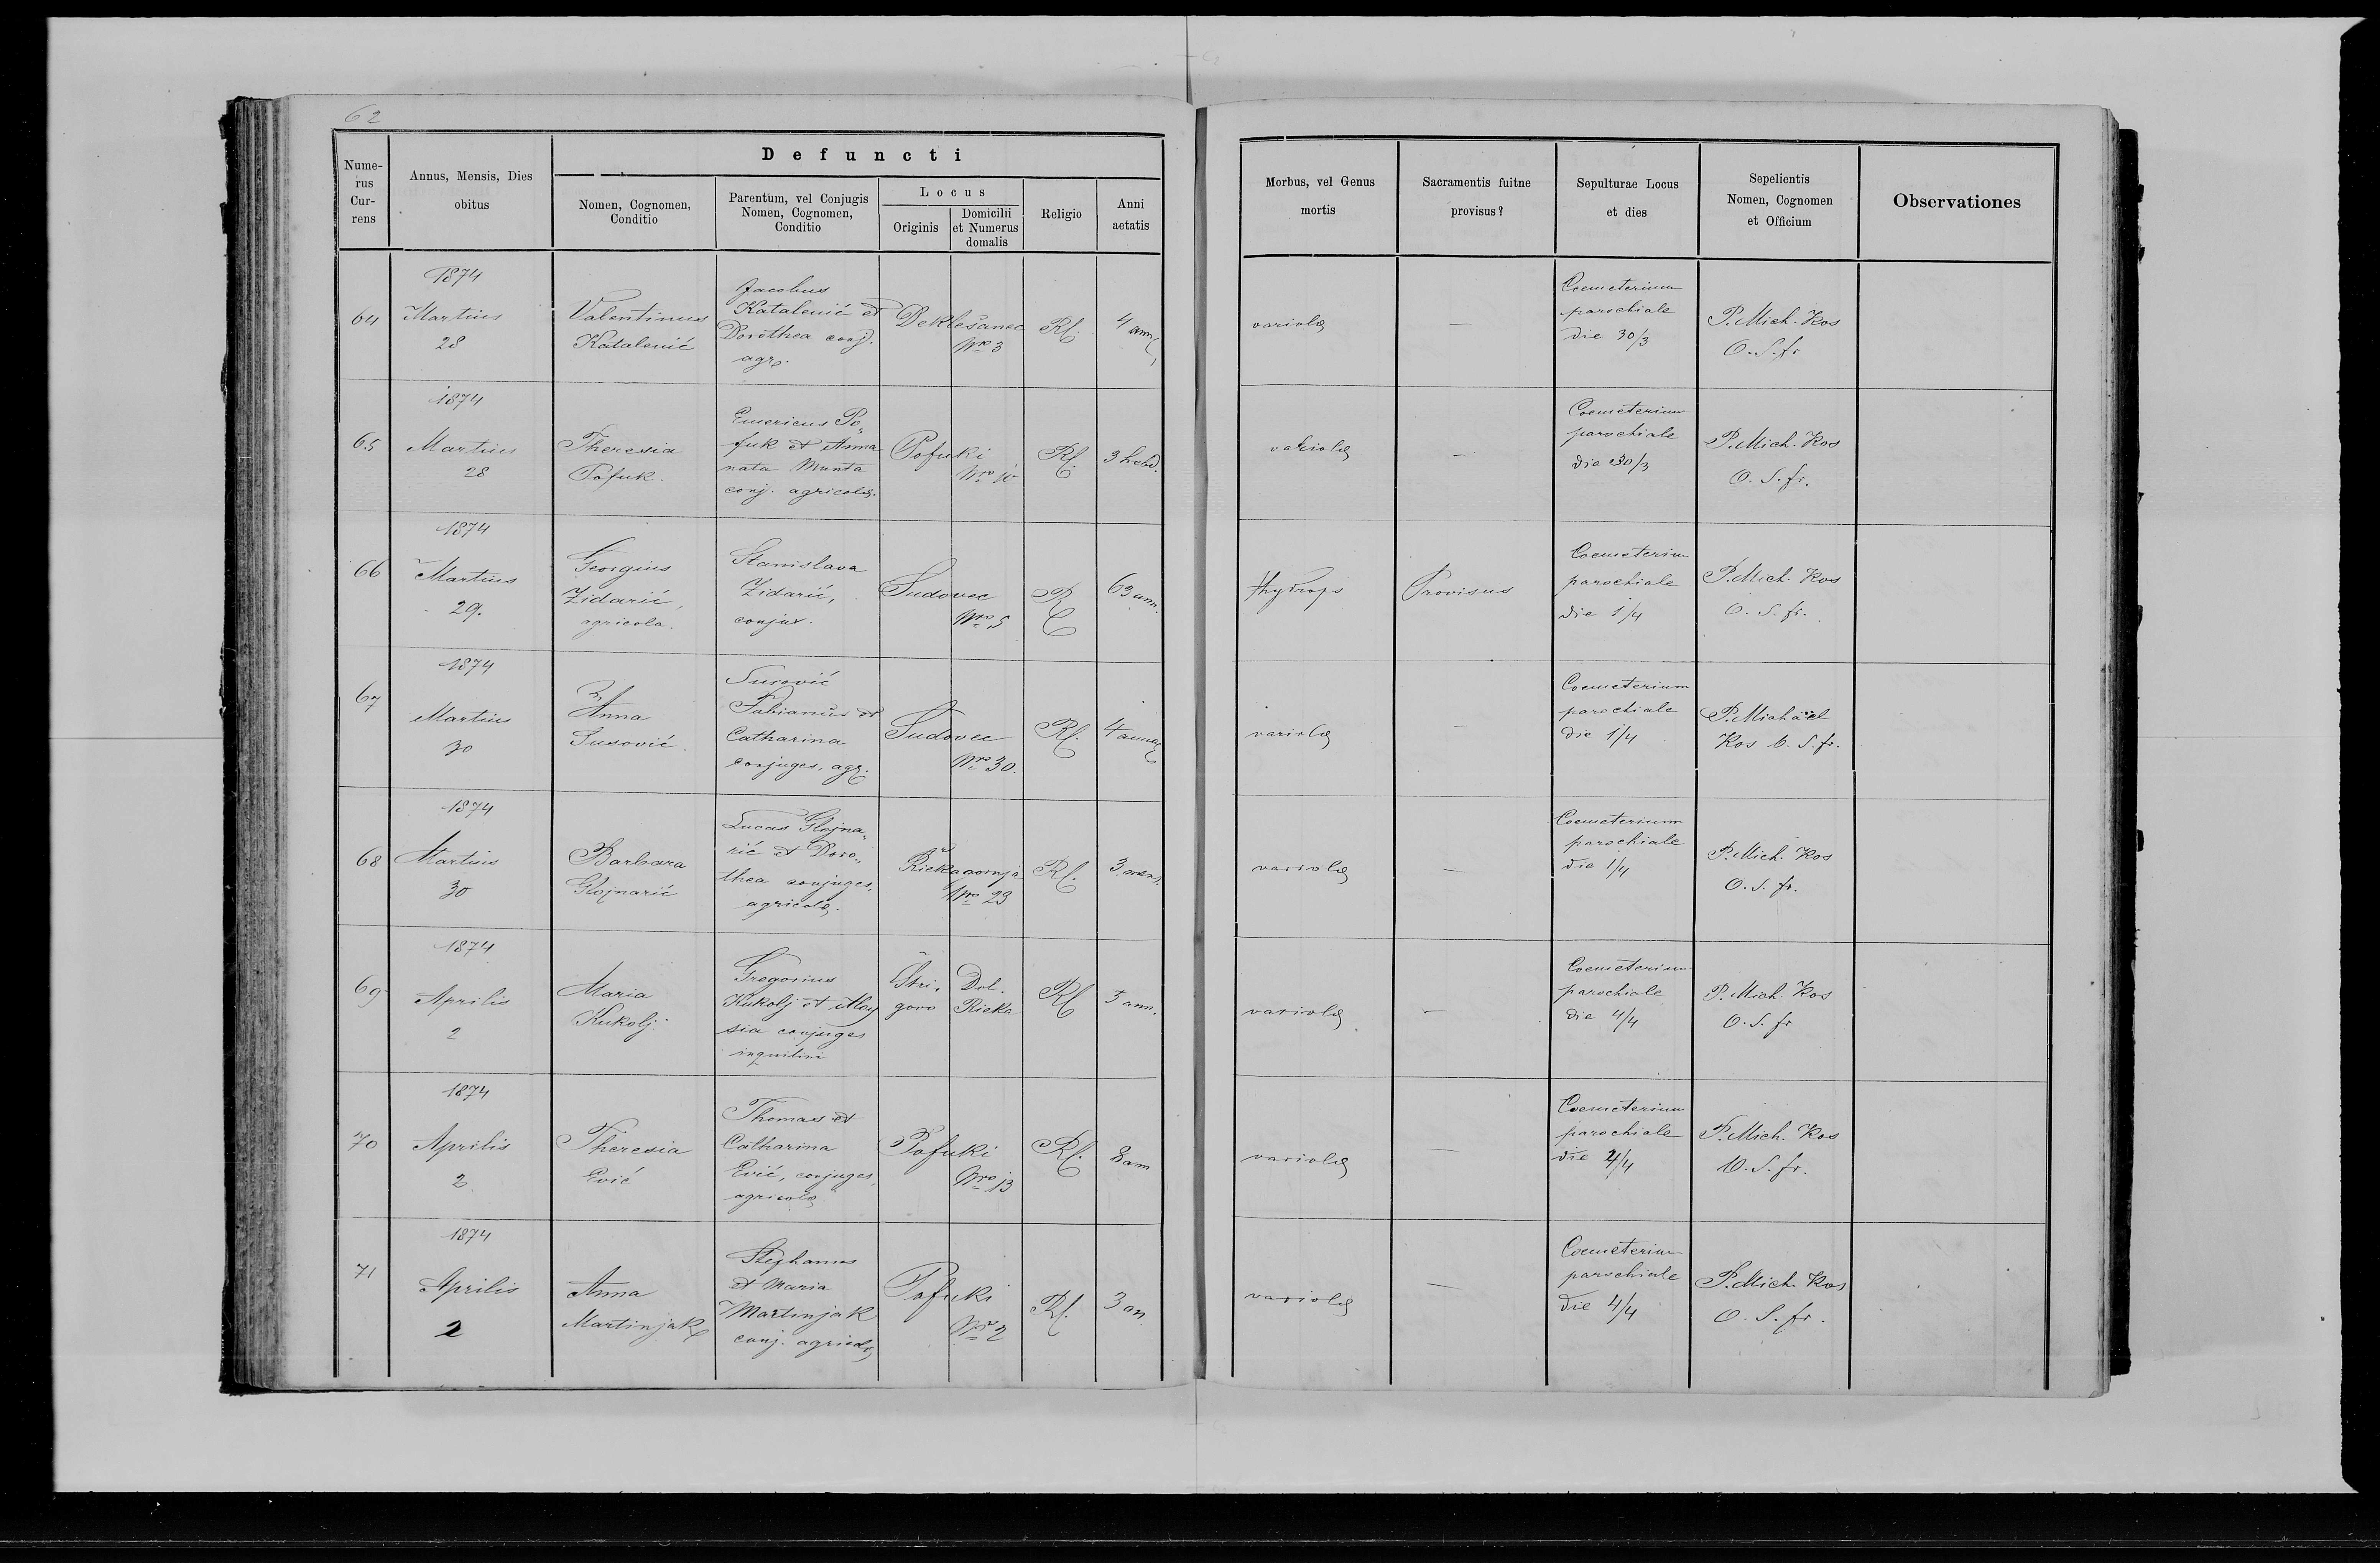 62
Defuncti
Nume-
rus
Cur-
rens
Annus, Mensis, Dies
obitus
Nomen, Cognomen,
Conditio
Parentum, vel Conjugis
Nomen, Cognomen,
Conditio
Locus
Originis
Domicilii
et Numerus
domalis
Religio
Anni
aetatis
Morbus, vel Genus
mortis
Sacramentis fuitne
provisus?
Sepulturae Locus
et dies
Sepelientis
Nomen, Cognomen
et Officium
Observationes
64
1874
Martius
28
Valentinus
Katalenić
Jacobus
Katalenić et
Dorothea conj.
agr.
Deklešanec
Nro 3
RC.
4 ann.
variolæ
—
Coemeterium
parochiale
die 30/3
P. Mich. Kos
O. S. fr
65
1874
Martius
28
Theresia
Pofuk.
Emericus Po„
fuk et Anna
nata Munta
conj. agricolæ.
Pofuki
Nro 10
RC.
3 hebd.
variolæ
—
Coemeterium
parochiale
die 30/3
P. Mich. Kos
O. S. fr.
66
1874
Martius
29.
Georgius
Zidarić,
agricola.
Stanislava
Zidarić,
conjux.
Sudovec
Nro 5
RC
63 ann.
Hydrops
Provisus
Coemeterium
parochiale
die 1/4
P. Mich. Kos
O. S. fr.
67
1874
Martius
30
Anna
Susović.
Susović
Fabianus et
Catharina
conjuges, agr.
Sudovec
Nro 30.
RC.
4
variolæ
—
Coemeterium
parochiale
die 1/4
P. Michaël
Kos O. S. fr.
68
1874
Martius
30
Barbara
Glojnarić
Lucas Glojna„
rić et Doro„
thea conjuges,
agricolæ.
Rieka gornja
Nro 23
RC.
3 mens.
variolæ
—
Coemeterium
parochiale
die 1/4
P. Mich. Kos
O. S. fr.
69
1874
Aprilis
2
Maria
Kukolj
Gregorius
Kukolj et Aloy
sia conjuges
inquilini
Štri„
govo
Dol.
Rieka
RC
3 ann.
variolæ
—
Coemeterium
parochiale
die 4/4
P. Mich. Kos
O. S. fr
70
1874
Aprilis
2
Theresia
Ević
Thomas et
Catharina
Ević, conjuges,
agricolæ
Pofuki
Nro 13
RC.
ann
variolæ
—
Coemeterium
parochiale
die 4/4
P. Mich. Kos
O. S. fr.
71
1874
Aprilis
2
Anna
Martinjak
Stephanus
et Maria
Martinjak
conj. agricolæ
Pofuki
Nro 2
RC.
3 an.
variolæ
—
Coemeterium
parochiale
die 4/4
P. Mich. Kos
O. S. fr.